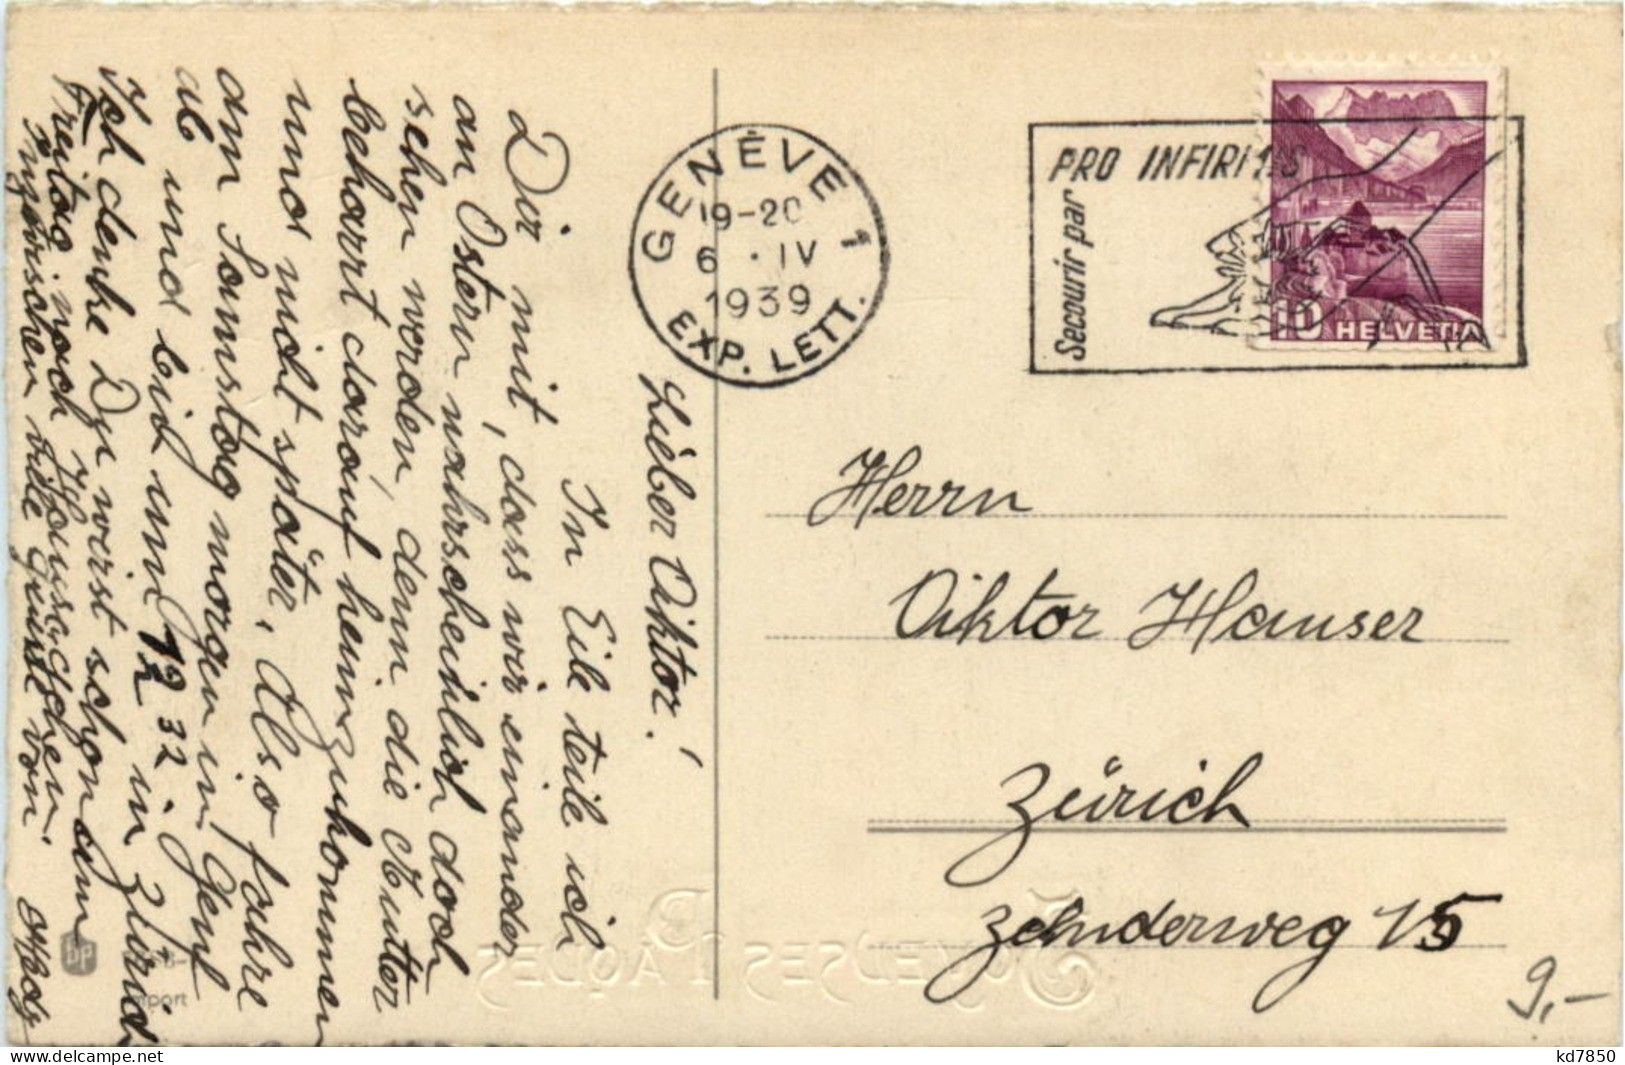 Lieber Viktor!
In Eile teile ich
Dir mit, dass wir einander
an Ostern wahrscheinlich doch
sehen werden, denn die Mutter
beharrt darauf heimzukommen
und nicht später. Also fahre
am Samstag morgen in Genf
ab und bin um 12 32 in Zürich
Ich denke Du wirst schon am
Freitag nach
viele Grüsse von
Hedy
GENÈVE 1
19-20
6 . IV
1939
EXP. LETT.
PRO INFIRMIS
Secourir par
10 HELVETIA
Herrn
Viktor Hauser
Zürich
Zehnderweg 15
JOYEUSES PAQUES
9,-
kd7850